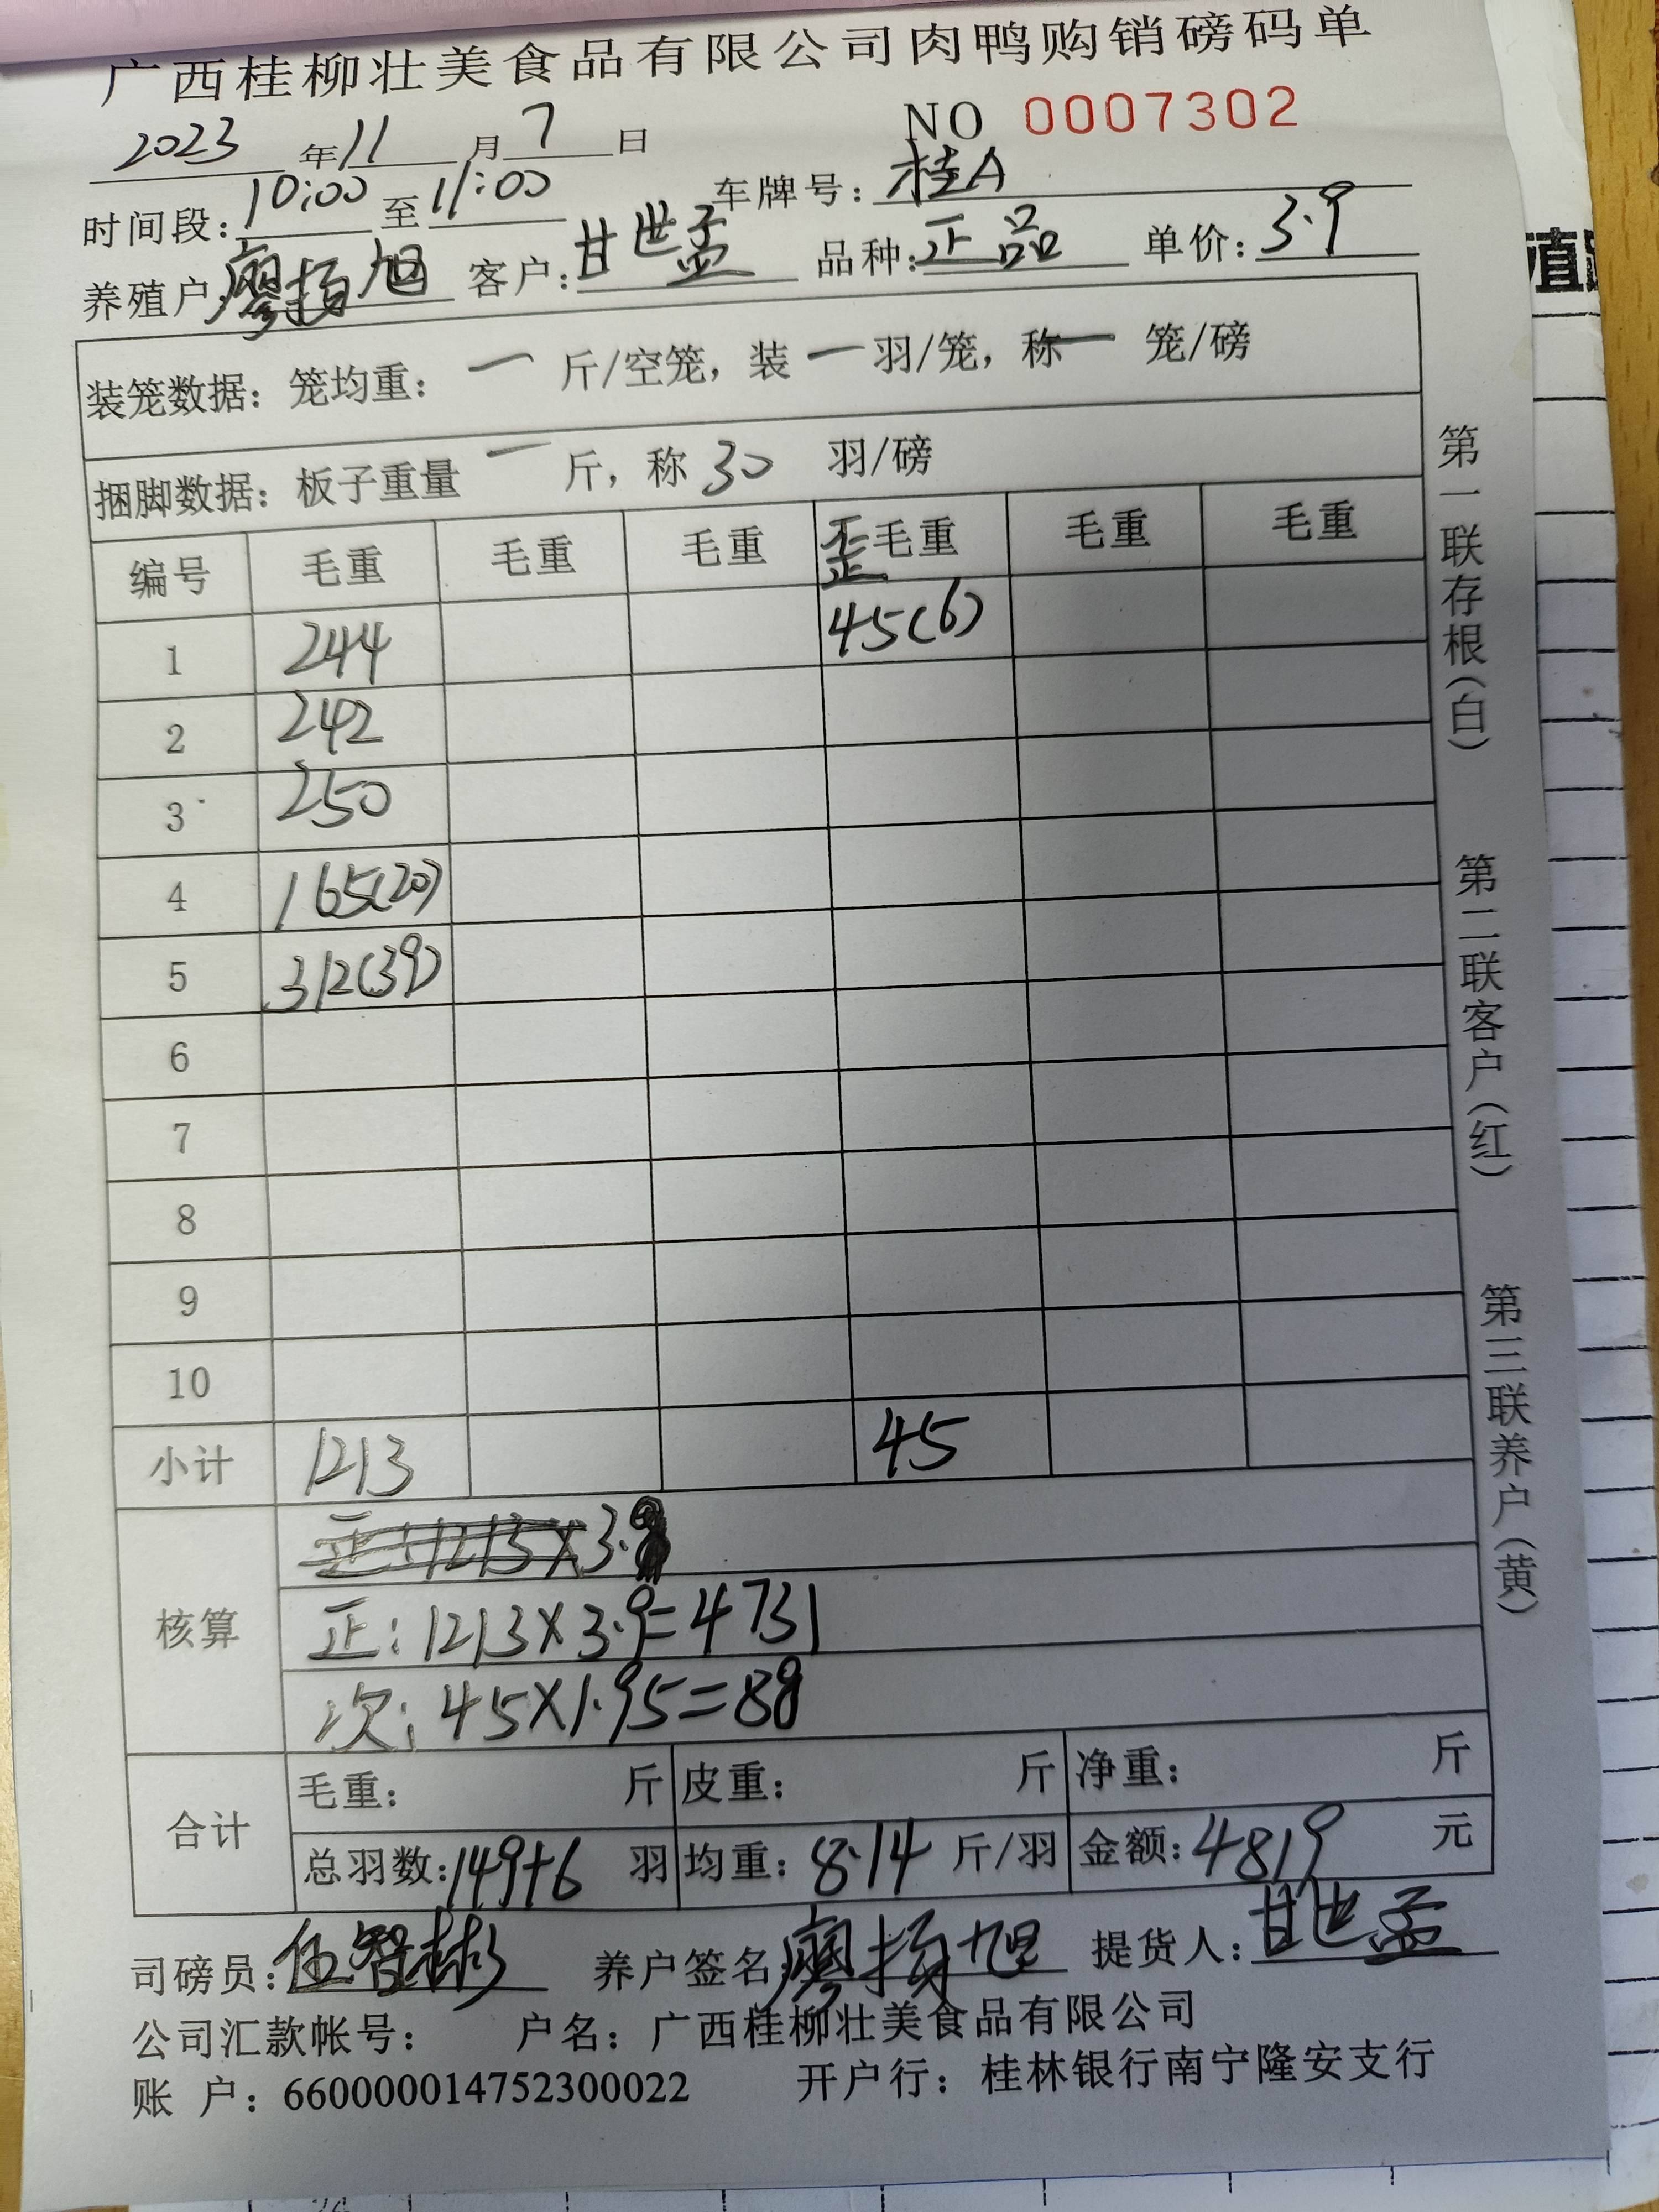 广西桂柳壮美食品有限公司肉鸭购销磅码单
2023年11月7日 NO 0007302
时间段:10:00至11:00 车牌号:桂A
养殖户:廖扬旭 客户:甘世孟 品种:正品 单价:3.9
装笼数据:笼均重:一斤/空笼,装一羽/笼,称一笼/磅
捆脚数据:板子重量一斤,称30羽/磅
编号 毛重 毛重 毛重 歪毛重 毛重 毛重
1 244 45(6)
2 242
3 250
4 165(20)
5 312(39)
6
7
8
9
10
小计 1213 45
正:1213×3.
核算 正:1213×3.9=4731
次:45×1.95=88
合计 毛重: 斤 皮重: 斤 净重: 斤
总羽数:149+6羽 均重:8.14斤/羽 金额:4819元
司磅员:伍智彬 养户签名:廖扬旭 提货人:甘世孟
公司汇款帐号: 户名:广西桂柳壮美食品有限公司
账 户:660000014752300022 开户行:桂林银行南宁隆安支行
第一联存根(白) 第二联客户(红) 第三联养户(黄)
殖